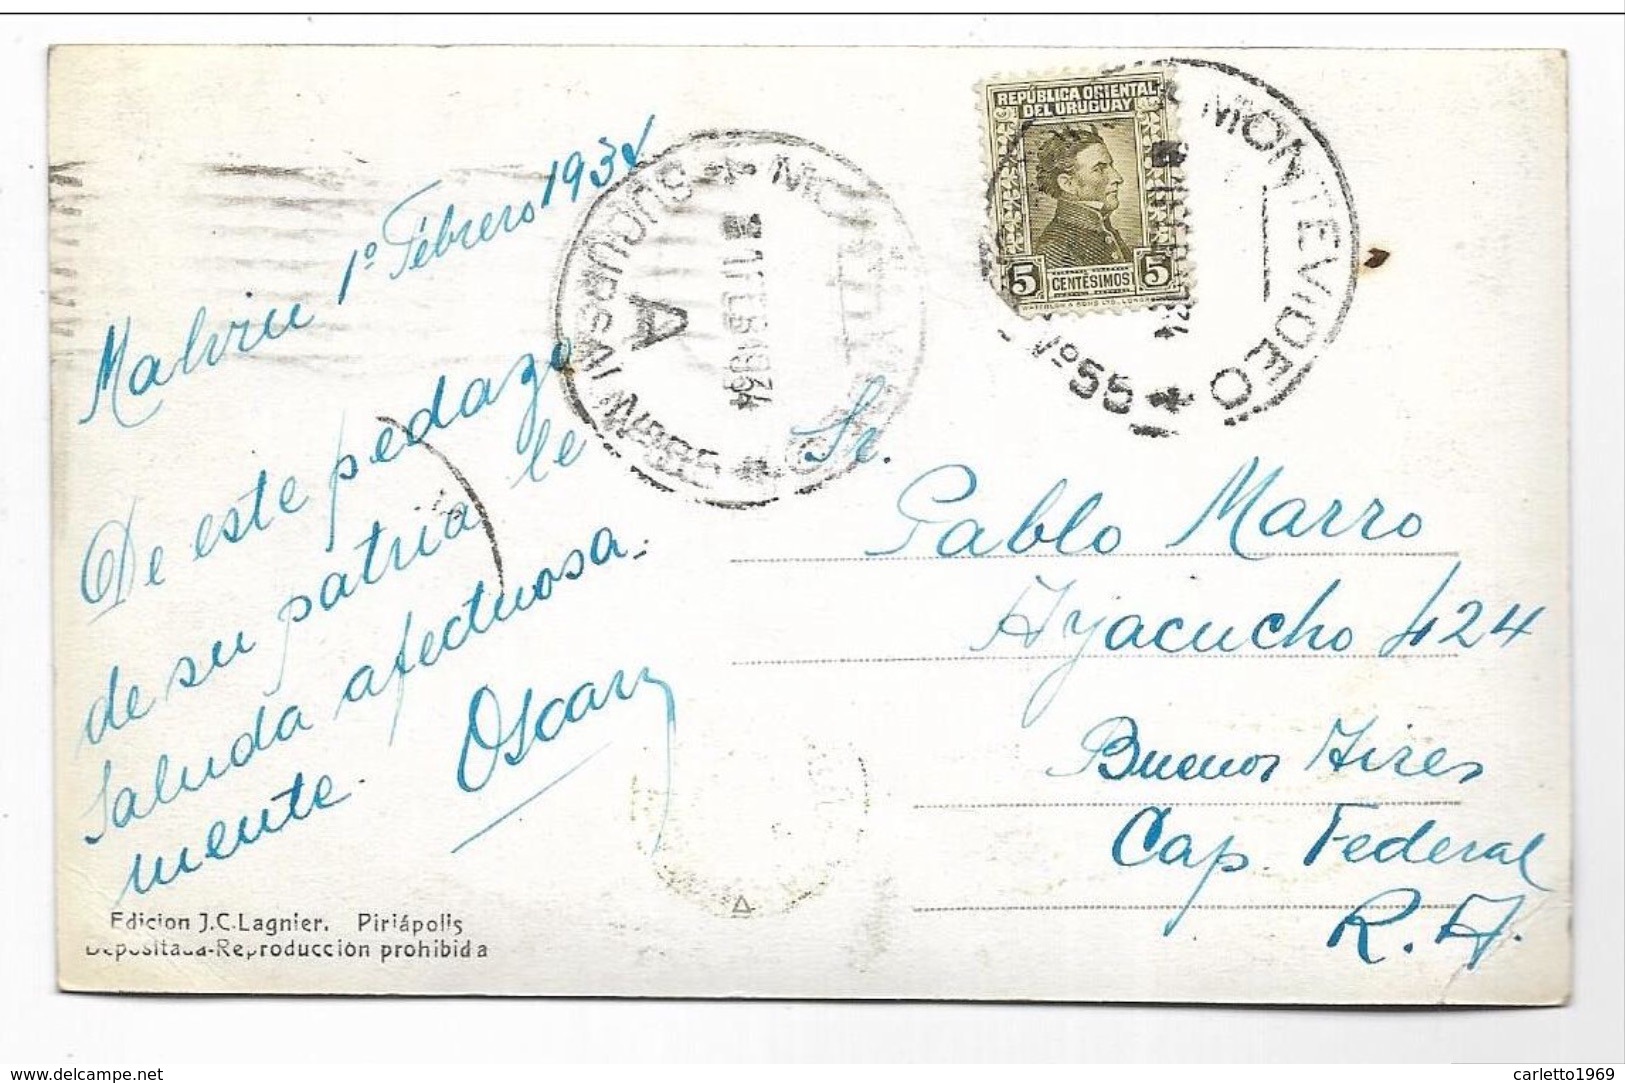 Malvin 1º Febrero 1934
De este pedazo
de su patria le
saluda afectuosa-
mente. Oscar
REPÚBLICA ORIENTAL
DEL URUGUAY
5 CENTÉSIMOS 5
WATERLOW & SONS LTD. LONDON
MONTEVIDEO
Nº 55
MONTEVIDEO
SUCURSAL Nº 55
A
1 FEB 1934
Sr.
Pablo Marro
Ayacucho 424
Buenos Aires
Cap. Federal
R. A.
Edicion J.C.Lagnier. Piriápolis
Depositada-Reproducción prohibida
www.delcampe.net
carletto1969